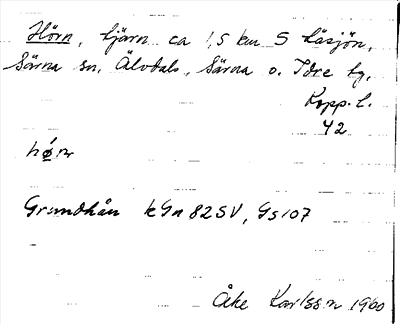 Hörn, tjärn ca 1,5 km S Låsjön,
Särna sn, Älvdals, Särna o. Idre tg,
Kopp. l.
42
hǿrn
Grundkån kGn 82SV, Gs107
Åke Karlsson 1960